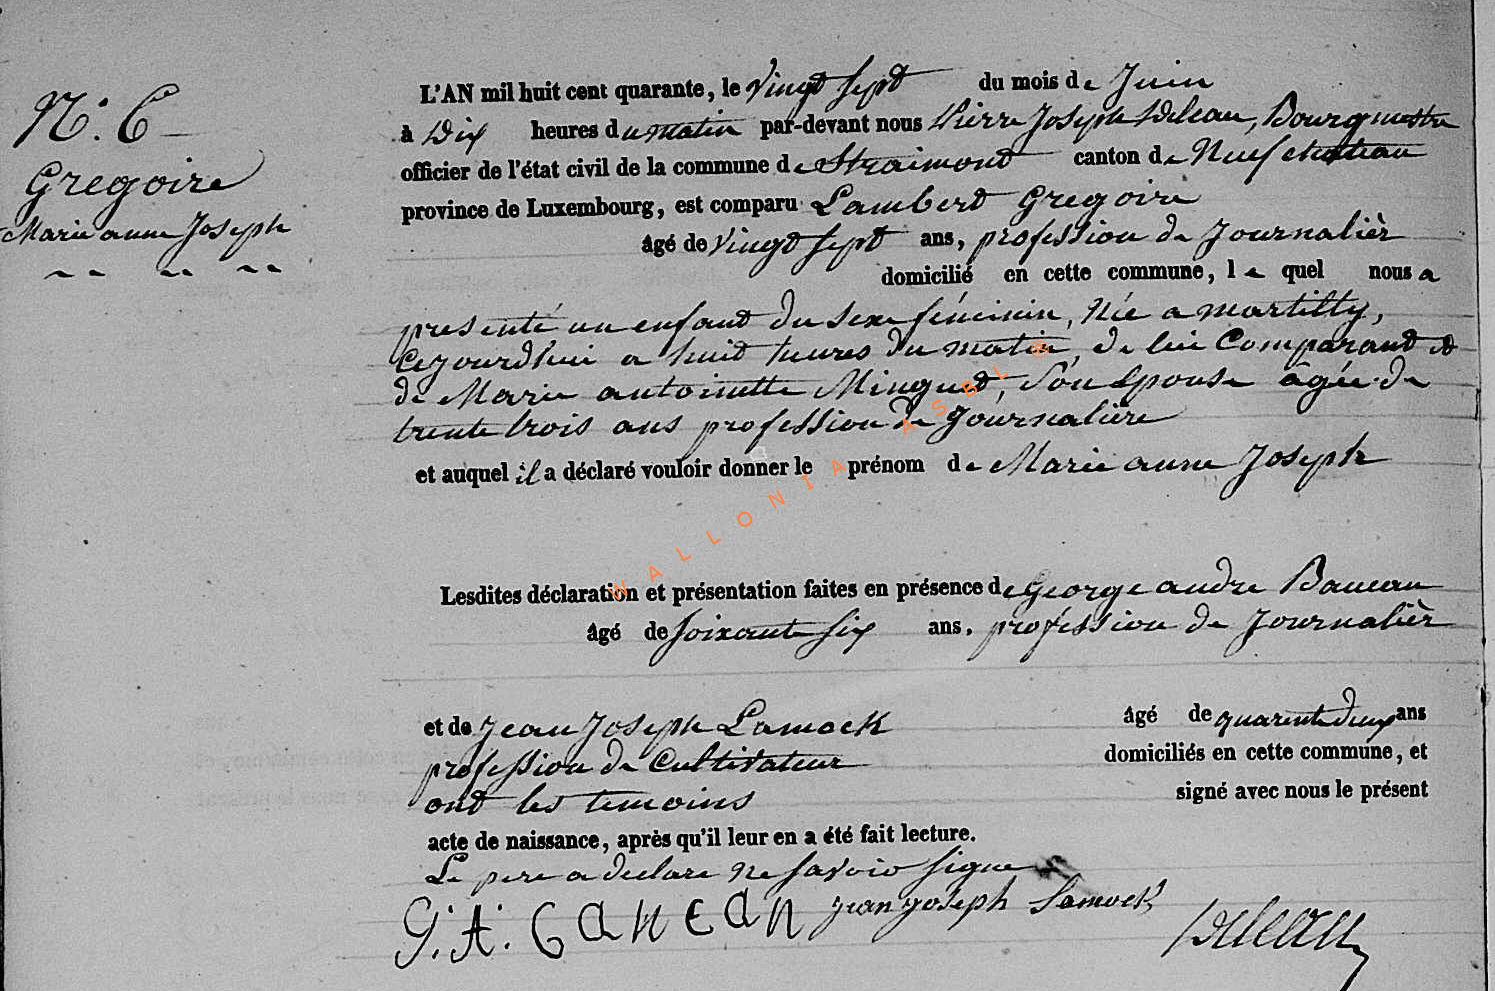 N.° 6
Gregoire
Marie anne Joseph
L'AN mil huit cent quarante, le vingt sept du mois de Juin
à Dix heures du matin par-devant nous Pierre Joseph Deleau, Bourgmestre
officier de l'état civil de la commune de Straimont canton de Neufchateau
province de Luxembourg, est comparu Lambert Gregoire
âgé de vingt sept ans, profession de Journalièr
domicilié en cette commune, le quel nous a
presenté un enfant du sexe féminin, Née a martilly,
Cejourdhui a huit heures du matin, de lui Comparant et
de Marie antoinette Minguet, Son Epouse agée de
trente trois ans profession de Journalière
et auquel il a déclaré vouloir donner le prénom de Marie anne Joseph
Lesdites déclaration et présentation faites en présence de George andre
âgé de soixante six ans, profession de Journalièr
et de Jean Joseph Lamock âgé de quarente deux ans
profession de Cultivateur domiciliés en cette commune, et
ont les temoins signé avec nous le présent
acte de naissance, après qu'il leur en a été fait lecture.
Le pere a declare ne savoir signe
G. A. jean joseph Lamock Deleau
WALLONIA ASBL ©